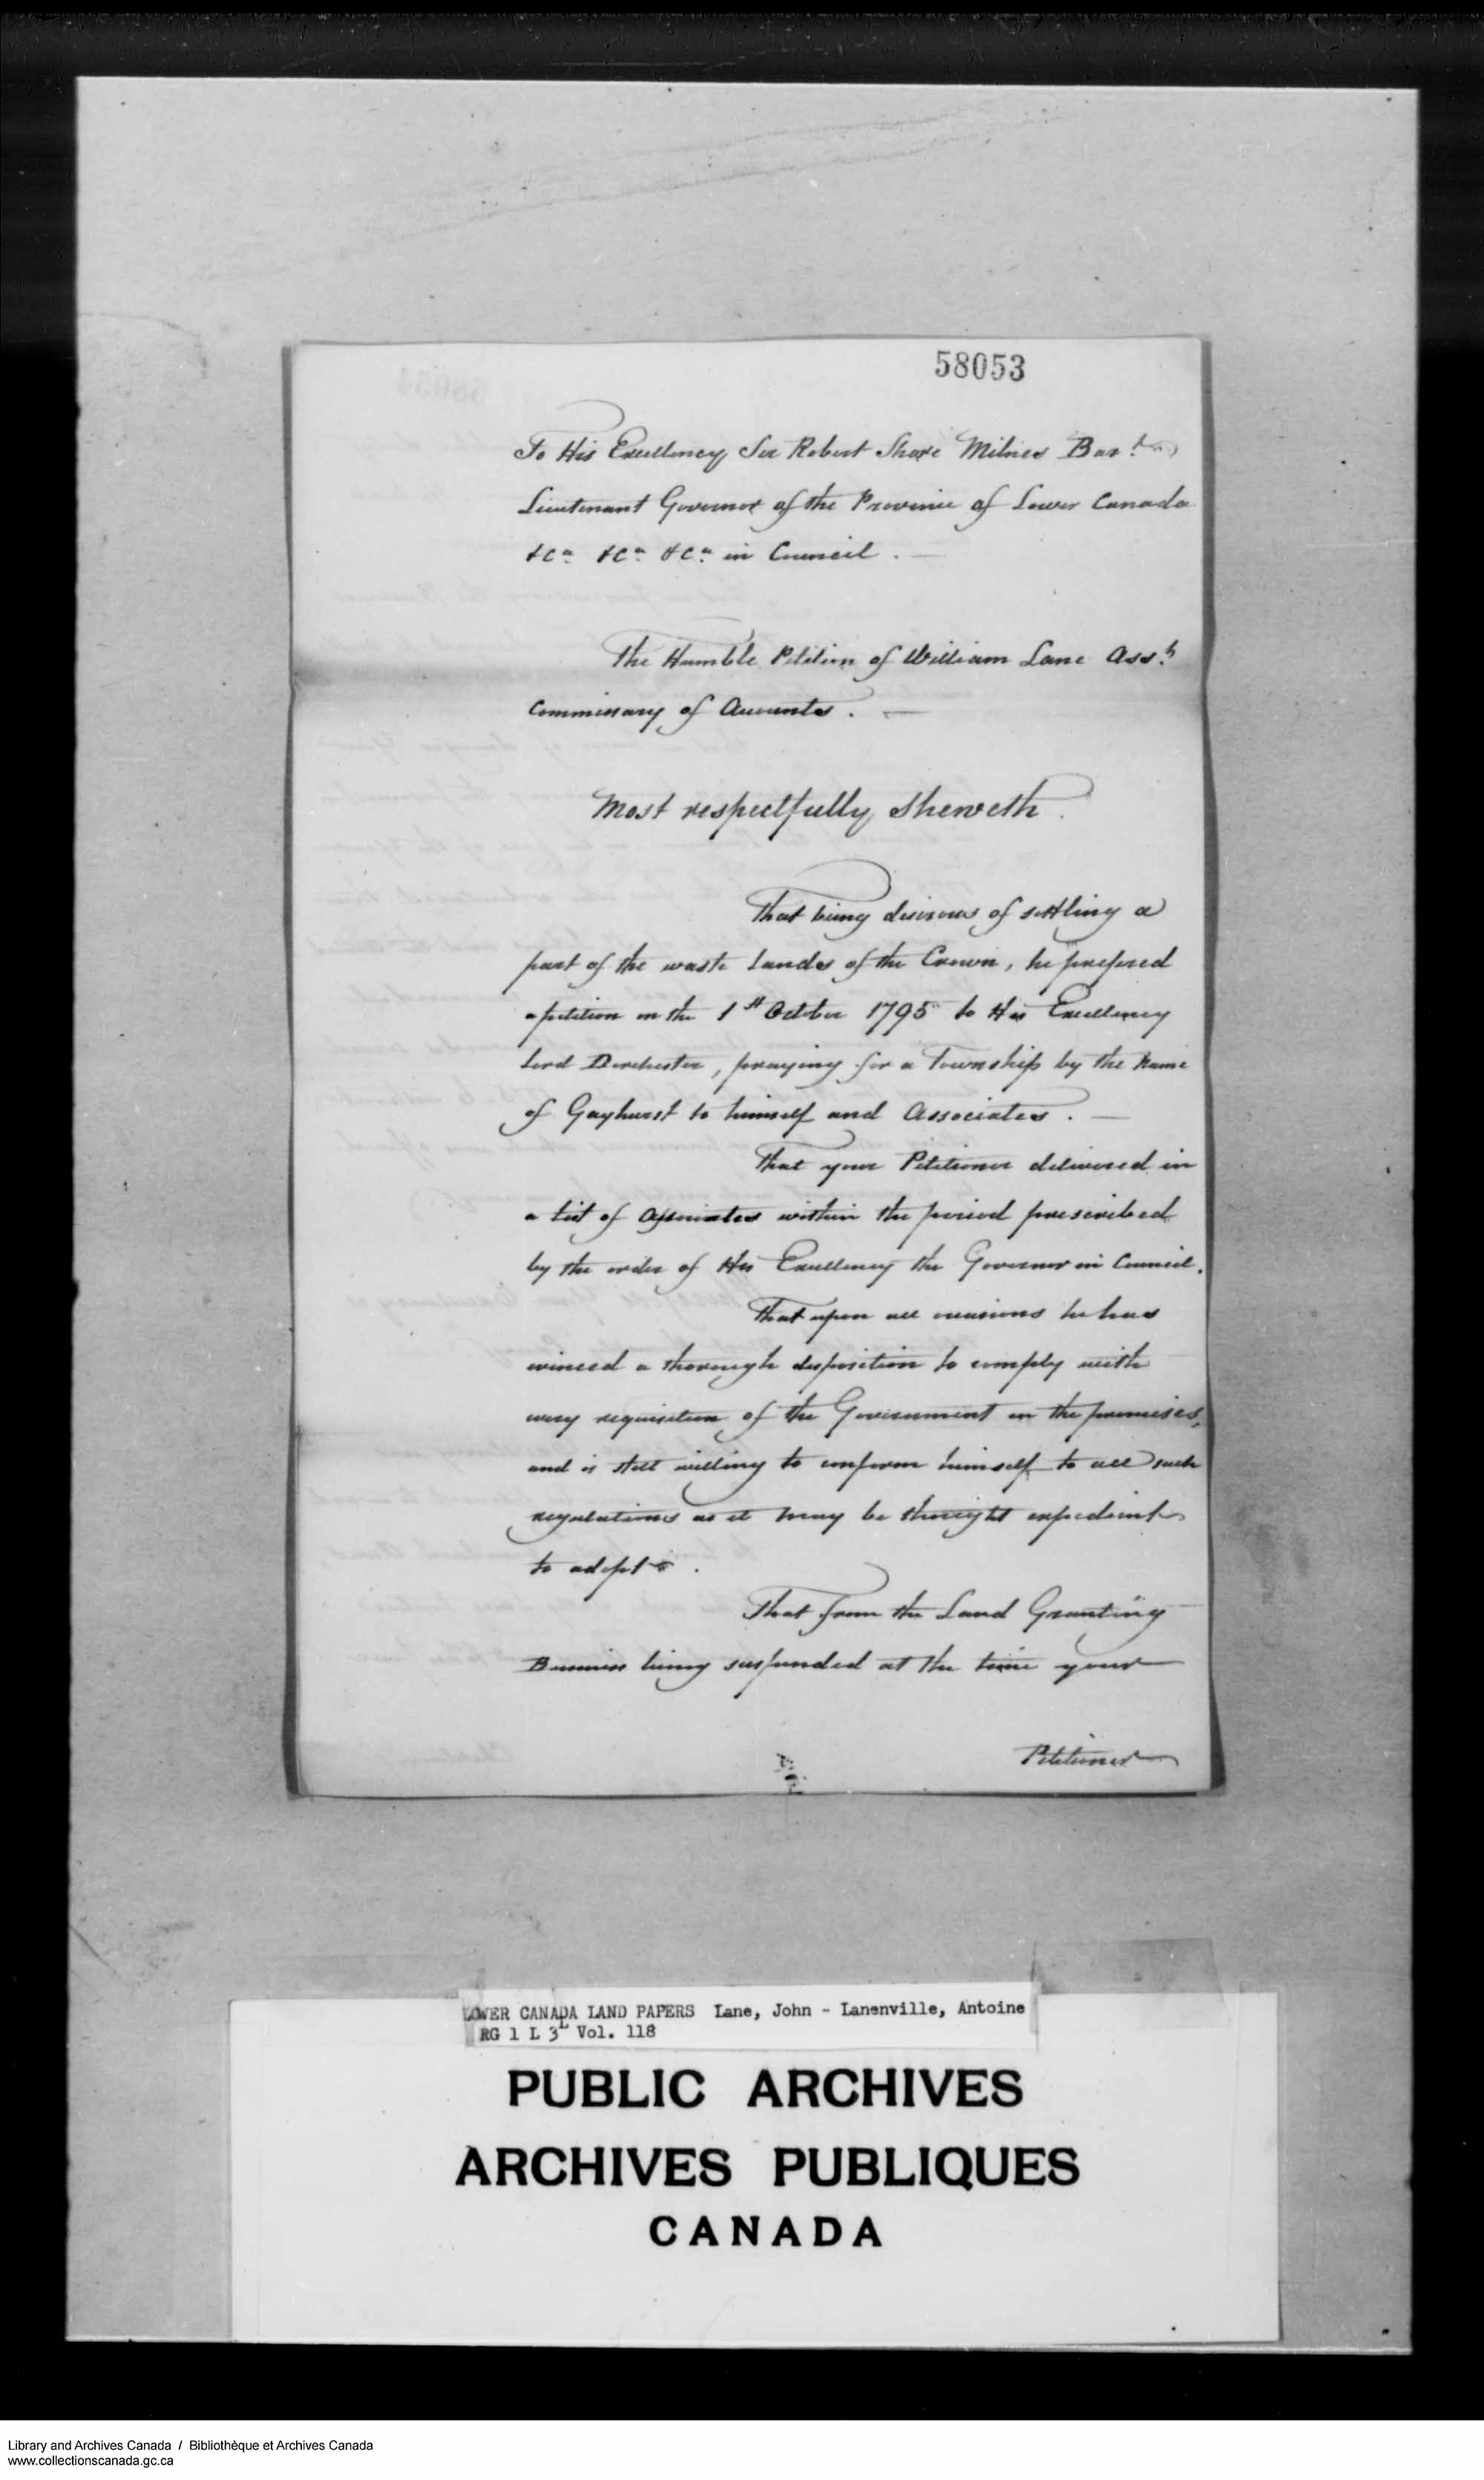 58053
To His Excellency Sir Robert Shore Milnes Bar.t
Lieutenant Governor of the Province of Lower Canada
&c.a &c.a &c.a in Council. —
The Humble Petition of William Lane Ass.t
Commissary of Accounts. —
Most respectfully Sheweth.
That being desirous of settling a
part of the waste Lands of the Crown, he prefered
a petition on the 1st October 1795 to His Excellency
Lord Dorchester, praying for a Township by the Name
of Gayhurst to himself and Associates. —
That your Petitioner delivered in
a list of Associates within the period prescribed
by the order of His Excellency the Governor in Council.
That upon all occasions he has
evinced a thorough disposition to comply with
every requisition of the Government in the premises,
and is still willing to conform himself to all such
regulations as it may be thought expedient
to adopt.
That from the Land Granting
Business being suspended at the time your
Petitioner
LOWER CANADA LAND PAPERS Lane, John - Lanenville, Antoine
RG 1 L 3L Vol. 118
PUBLIC ARCHIVES
ARCHIVES PUBLIQUES
CANADA
Library and Archives Canada / Bibliothèque et Archives Canada
www.collectionscanada.gc.ca